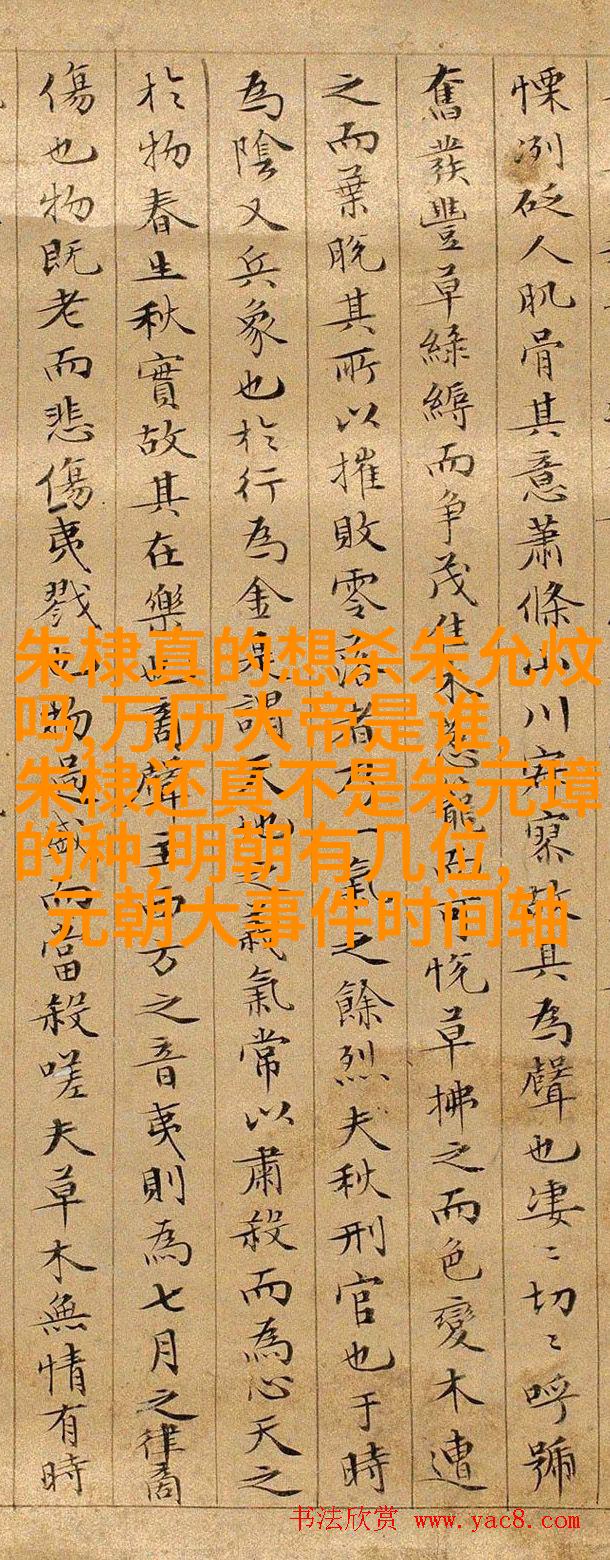 慄冽砭人肌骨其意蕭條山川寂寥故其為聲也淒〻切〻呼號
奮發豐草綠縟而争茂佳木葱蘢而可悅草拂之而色變木遭
之而葉脫其所以摧敗零落者乃一氣之餘烈夫秋刑官也于時
為陰又兵象也於行為金是謂天地之義氣常以肅殺而為心天之
於物春生秋實故其在樂也商聲主西方之音夷則為七月之律商
傷也物既老而悲傷夷戮也物過盛而當殺嗟夫草木無情有時
朱棣真的想杀朱允炆
吗,万历大帝是谁,
朱棣还真不是朱元璋
的种,明朝有几位,
元朝大事件时间轴
书法欣赏 www.yac8.com